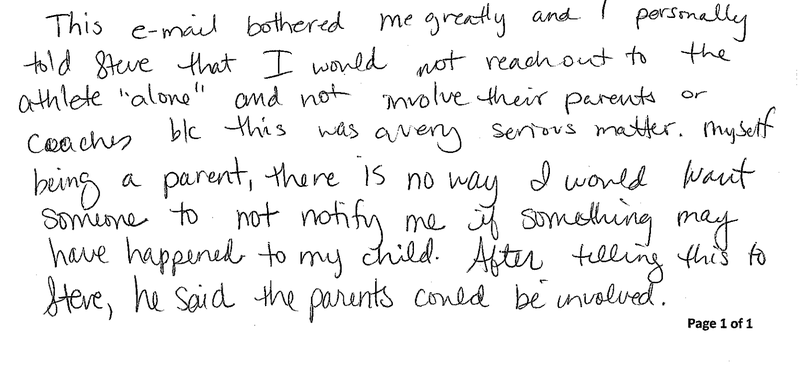 This e-mail bothered me greatly and I personally
told Steve that I would not reach out to the
athlete "alone" and not involve their parents or
coaches b/c this was a very serious matter. Myself
being a parent, there is no way I would want
someone to not notify me if something may
have happened to my child. After telling this to
Steve, he said the parents could be involved.
Page 1 of 1